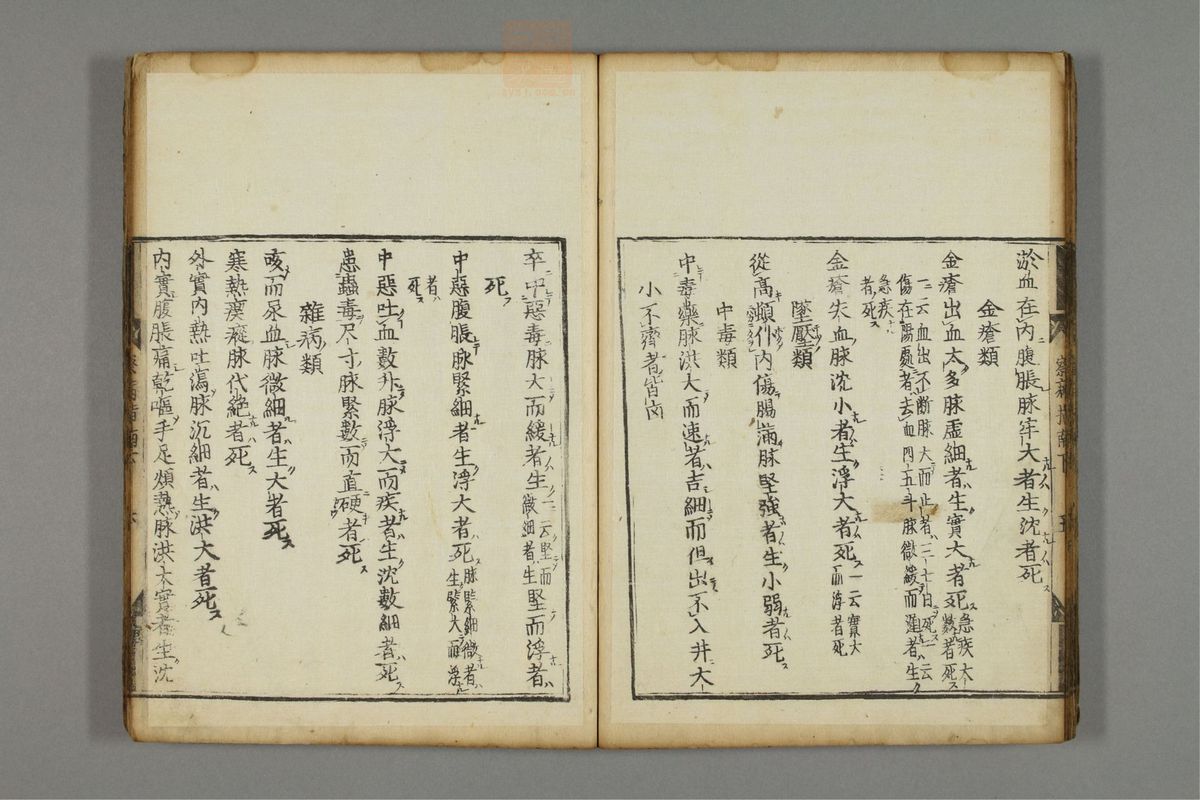 淤血在内腹脹脉牢大者生沈者死
金瘡類
金瘡出血太多脉虚細者生實大者死急疾大數者死
一云血出不断脉大而止者三七日死一云
傷在陽處者去血四五斗脉微緩而遲者生
急疾者死
金瘡失血脉沈小者生浮大者死一云實大而浮者死
墜壓類
從髙顛仆内傷腸滿脉堅強者生小弱者死
中毒類
中毒藥脉洪大而速者吉細而但出不入井大
小不齊者皆凶
卒中惡毒脉大而緩者生一云堅而微細者生堅而浮者
死
中惡腹脹脉緊細者生浮大者死脉緊細微者生緊大而浮
者死
中惡吐血數升脉浮大而疾者生沈數細者死
患蟲毒尺寸脉緊數而直硬者死
雜病類
咳而尿血脉微細者生大者死
寒熱瘈瘲脉代絶者死
外實内熱吐瀉脉沉細者生洪大者死
内實腹脹痛乾嘔手足煩熱脉洪大實者生沈